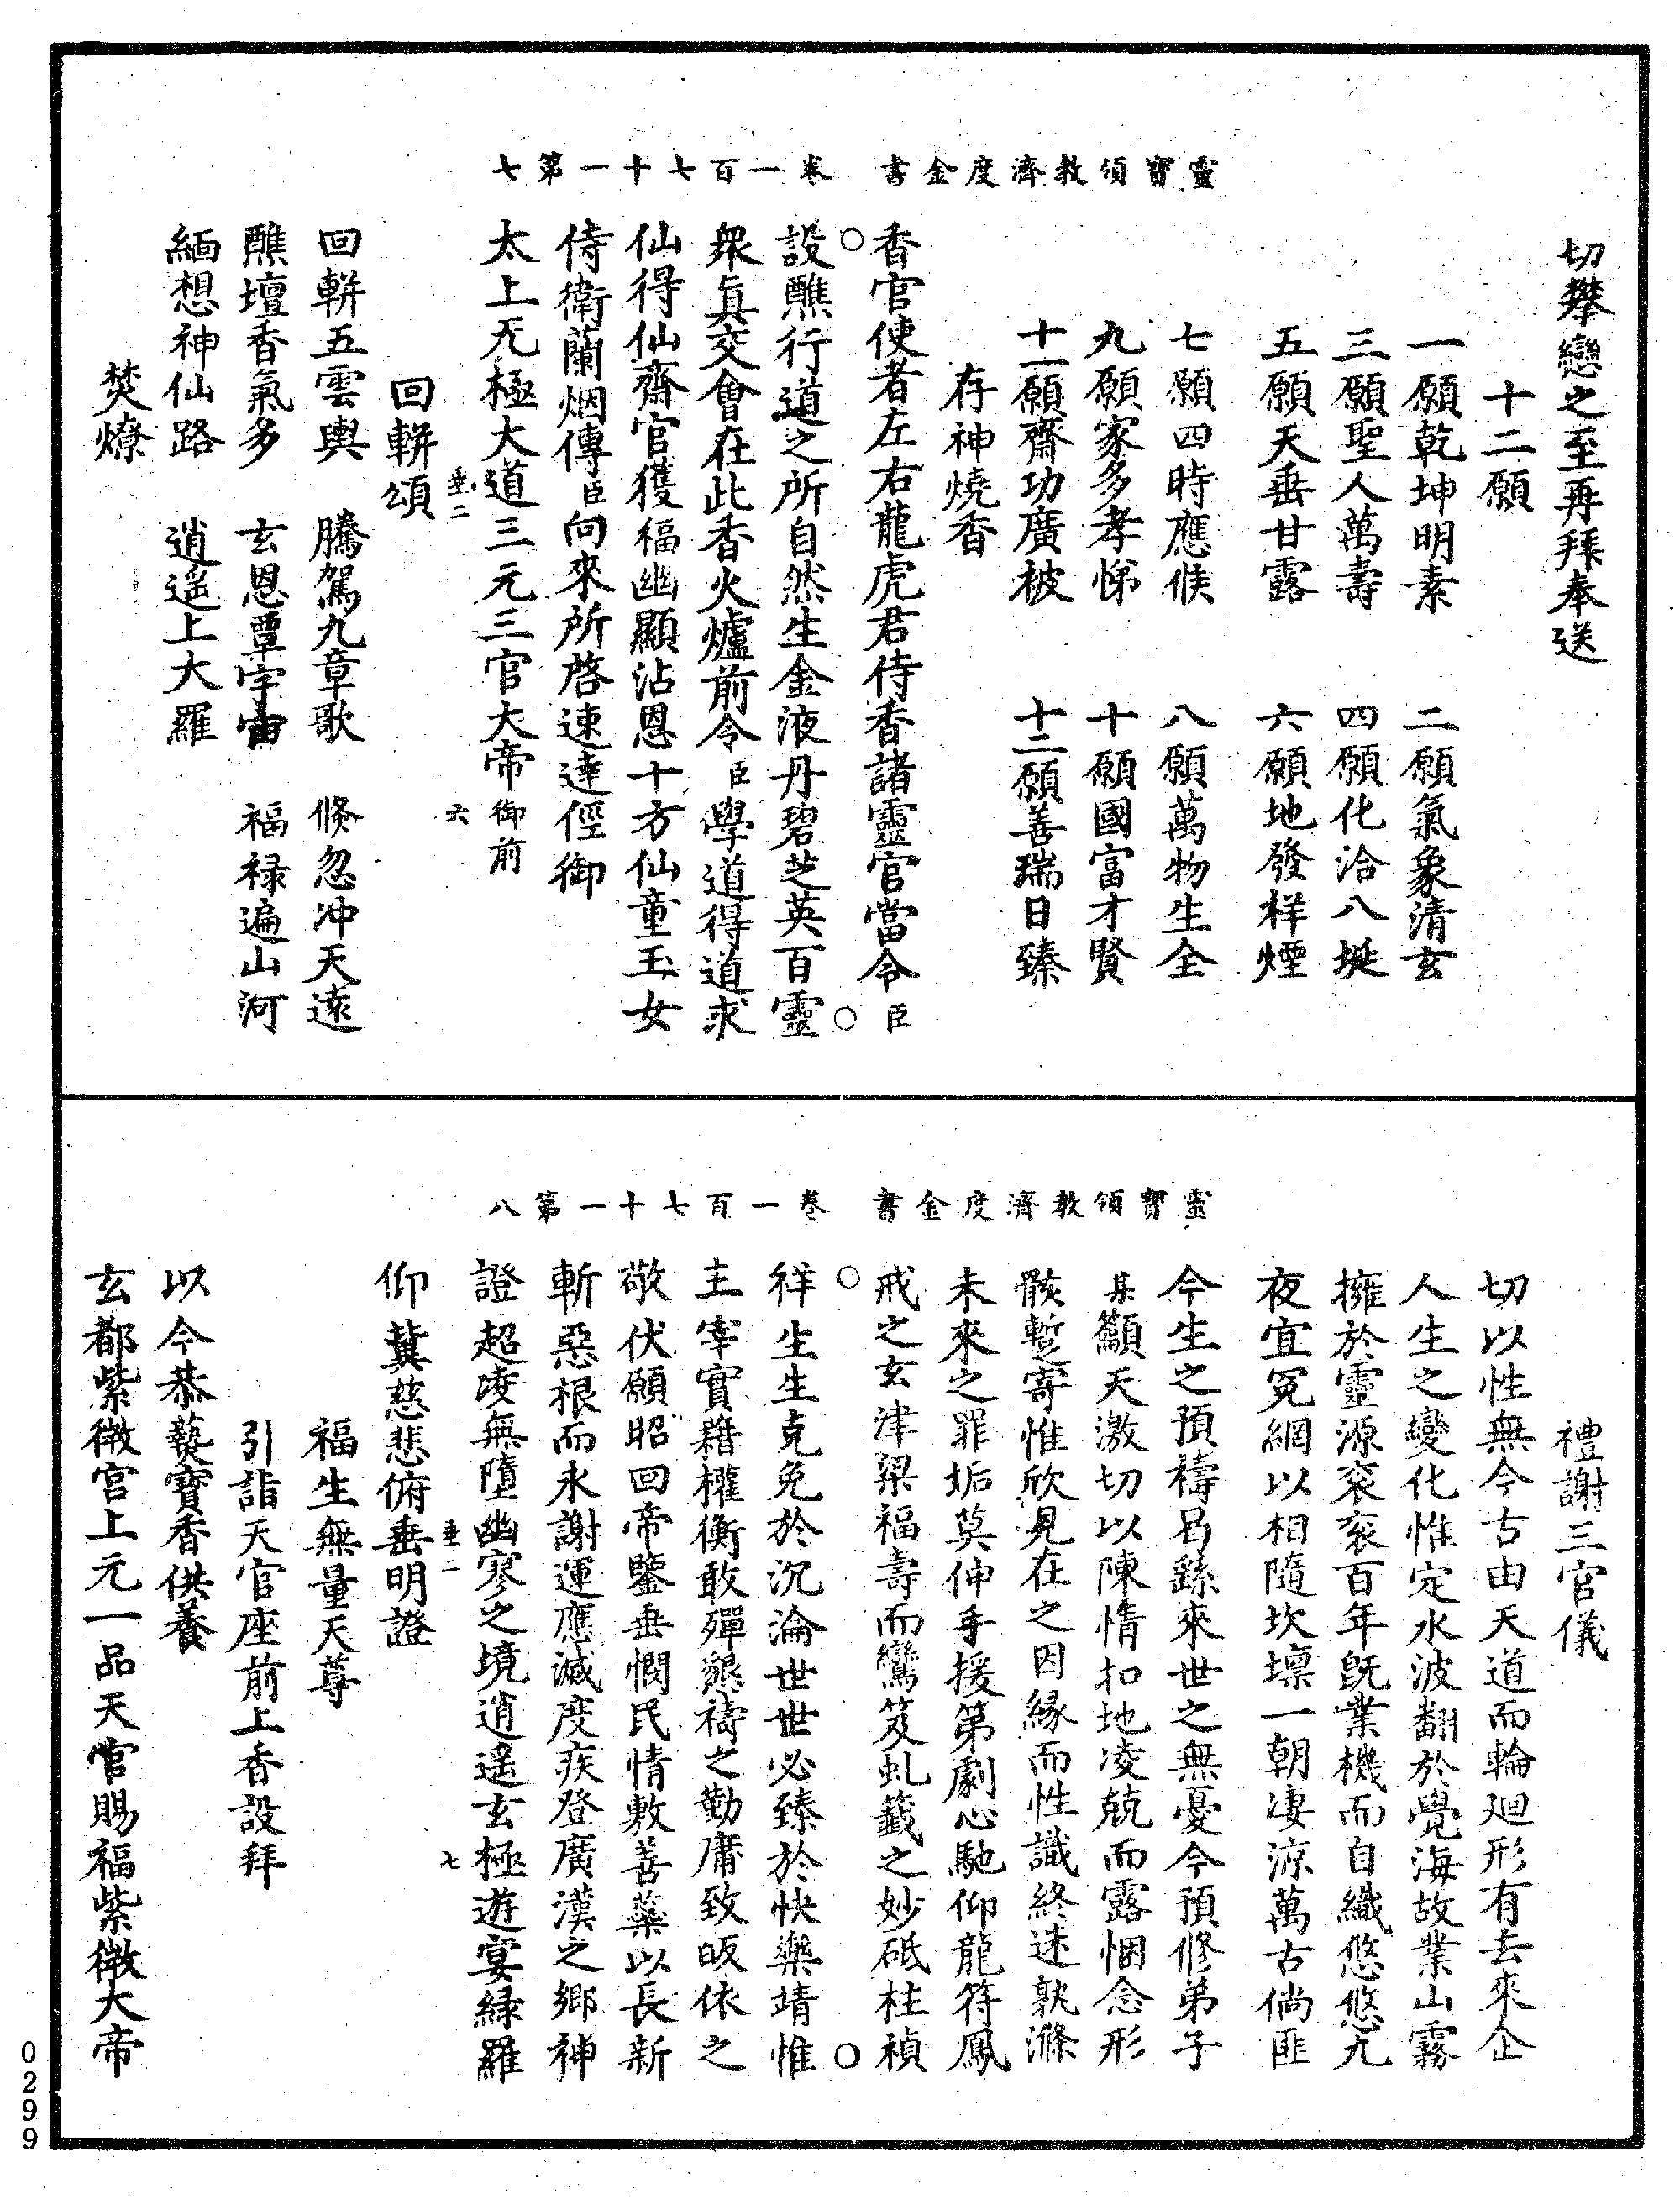 切攀戀之至再拜奉送
十二願
一願乾坤明素　二願氣象清玄
三願聖人萬壽　四願化洽八埏
五願天垂甘露　六願地發祥煙
七願四時應候　八願萬物生全
九願家多孝悌　十願國富才賢
十一願齋功廣被　十二願善瑞日臻
存神燒香
香官使者左右龍虎君侍香諸靈官當令臣
靈寶領教濟度金書　卷一百七十一第七
設醮行道之所自然生金液丹碧芝英百靈
衆真交會在此香火爐前令臣學道得道求
仙得仙齋官獲福幽顯沾恩十方仙童玉女
侍衛蘭烟傳臣向來所啓速達徑御
太上无極大道三元三官大帝御前
垂二　六
回軿頌
回軿五雲輿　騰駕九章歌　倏忽冲天遠
醮壇香氣多　玄恩覃宇宙　福禄遍山河
緬想神仙路　逍遥上大羅
焚燎
禮謝三官儀
切以性無今古由天道而輪廻形有去來企
人生之變化惟定水波翻於覺海故業山霧
擁於靈源衮衮百年旣業機而自織悠悠九
夜宜冤網以相隨坎壈一朝凄涼萬古倘匪
今生之預禱曷繇來世之無憂今預修弟子
某籲天激切以陳情扣地凌兢而露悃念形
骸暫寄惟欣見在之因緣而性識終迷孰滌
未來之罪垢莫伸手援第劇心馳仰龍符鳳
戒之玄津梁福壽而鸞笈虬籖之妙砥柱禎
靈寶領教濟度金書　卷一百七十一第八
祥生生克免於沉淪世世必臻於快樂靖惟
主宰實藉權衡敢殫懇禱之勤庸致皈依之
敬伏願昭回帝鑒垂憫民情敷善蘂以長新
斬惡根而永謝運應滅度疾登廣漢之鄉神
證超凌無墮幽寥之境逍遥玄極遊宴緑羅
垂二　七
仰冀慈悲俯垂明證
福生無量天尊
引詣天官座前上香設拜
以今恭爇寳香供養
玄都紫微宫上元一品天官賜福紫微大帝
0299